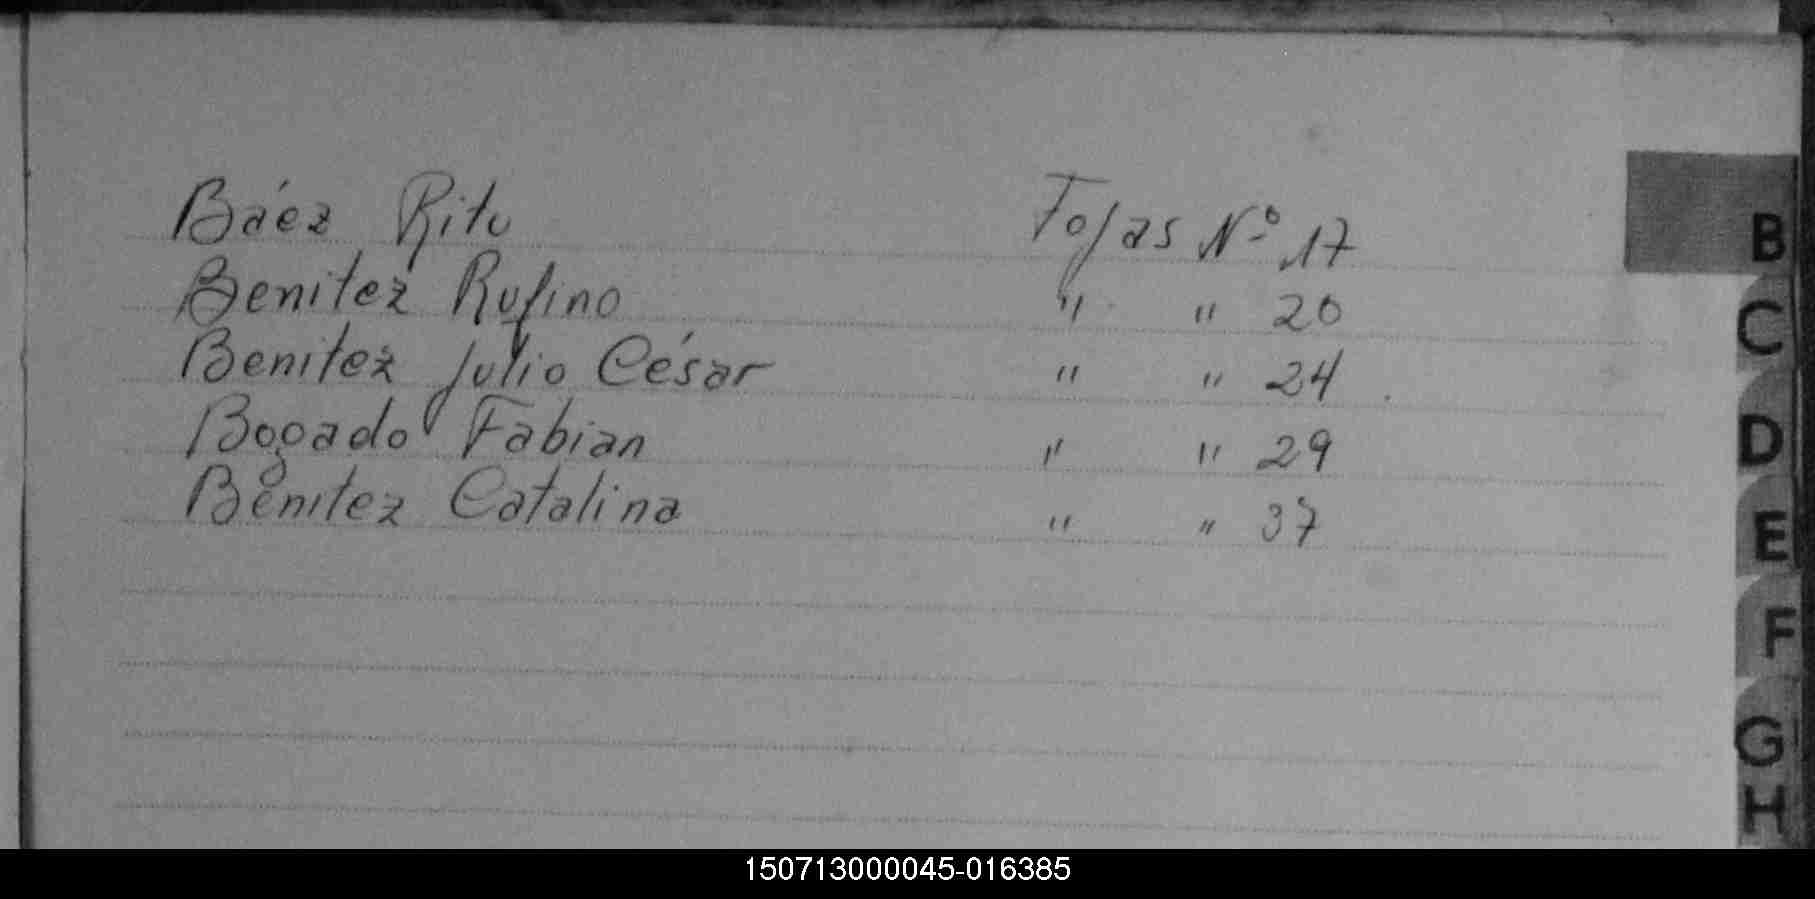 Báez Rito Fojas Nº 17
Benitez Rufino " " 20
Benitez Julio César " " 24
Bogado Fabian " " 29
Benitez Catalina " " 37
B
C
D
E
F
G
H
150713000045-016385